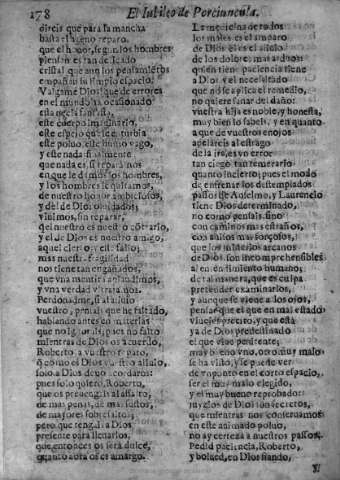 178 El Iubileo de Porciuncula.
direis que para su mancha
basta el ageno reparo.
que el honor, segun los hombres
piensan es tan delicado
cristal que aun los pensamientos
empañan su limpio espacio.
Valgame Dios! que de errores
en el mundo ha ocasionado
esta
este cuerpo imaginario,
este espejo que se turbia
este polvo, este humo vago,
y este nada finalmente
que nada es, si reparamos
en que le damos los hombres,
y los hombres le quitamos,
de nuestro honor ambiciosos,
y del de Dios olvidados,
vivimos, sin reparar,
que el nuestro es nuestro cōtrario,
y el de Dios es nuestro amigo,
aquel cierto, y este falso;
mas nuestra fragilidad
nos tiene tan engañados,
que vna mentira aplaudimos,
y vna verdad vltrajamos.
Perdonadme, si al aluiuo
vuestro, pensais que he faltado,
hablando antes en materias
que no ignorais; pues no falto
mientras de Dios os acuerdo,
Roberto, a vuestro reparo,
q̄ como es Dios vuestro aliuio,
solo a Dios debo acordaros:
pues solo quiero, Roberto,
que os preuengais al assalto,
de mas penas, de mas sustos,
de mayores sobresaltos;
pero que tengais a Dios
presente para lleuarlos,
que entonces os será dulce,
quanto aora os es amargo.
La medicina de todos
los males es el amparo
de Dios él es el aliuio
de los dolores mas arduos
quien tiene paciencia tiene
a Dios, y el necessitado
que no se aplica el remedio,
no quiere sanar del daño:
vuestra hija es noble, y honesta,
muy bien lo sabeis, y en quanto
a que de vuestros enojos
apelareis al estrago
de la ira, es vn error
tan ciego, tan temerario
quanto incierto; pues el modo
de enfrenar los destemplados
passos de Anselmo, y Laurencio
tiene Dios determinado,
no como pensais, sino
con caminos mas estraños,
con auisos mas forçosos,
que los misterios arcanos
de Dios son incomprehensibles
al entendimiento humano;
de tal manera, que es culpa
pretender examinarlos,
y aunque se viene a los ojos,
pensar que el que en mal estado
viue, es precito, y que está
ya de Dios predestinado
el que viue penitente;
muy bueno vno, otro muy malo
se ha visto, y se puede ver
de repente en el corto espacio,
ser el muy malo elegido,
y el muy bueno reprobado:
juyzios de Dios son secretos,
que mientras nos conseruamos
en este animado poluo,
no ay certeza a nuestros passos.
Pedid paciencia, Roberto,
y bolued, en Dios fiando,